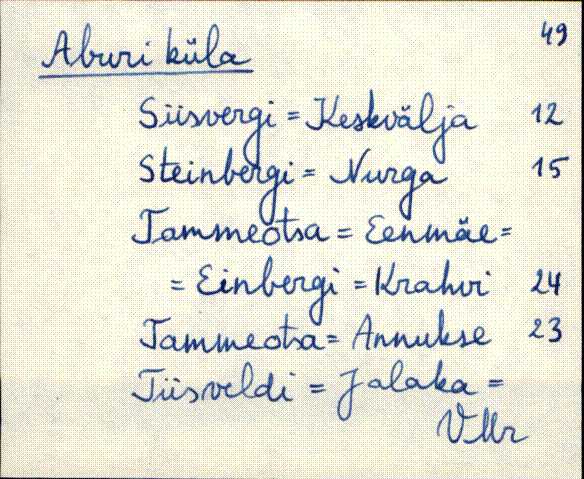 49
Aburi küla
Siisvergi = Keskvälja 12
Steinbergi = Nurga 15
Tammeotsa = Eenmäe =
= Einbergi = Krahvi 24
Tammeotsa = Annukse 23
Tiisveldi = Jalaka =